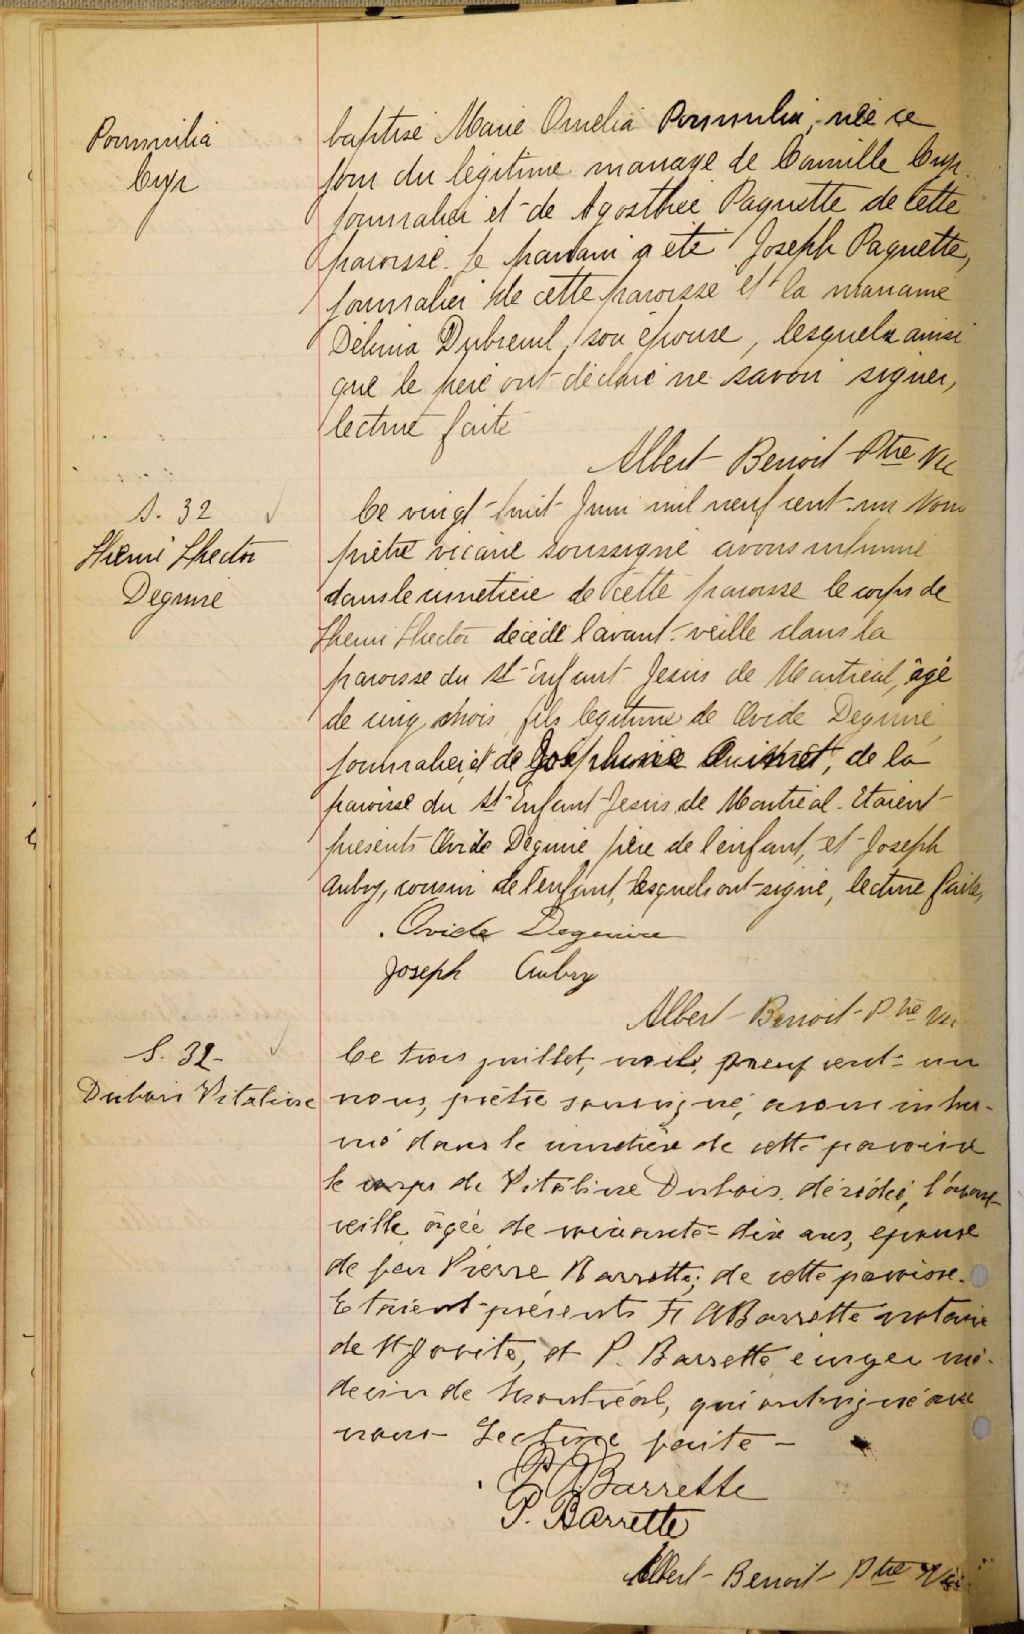 Pommilia
Cyr
baptisé Marie Omelia Pommilia, née ce
jour du légitime mariage de Camille Cyr
journalier et de Agosthée Paquette de cette
paroisse. Le parrain a été Joseph Paquette,
journalier de cette paroisse et la marraine
Délima Dubreuil, son épouse, lesquels ainsi
que le père ont déclaré ne savoir signer,
lecture faite
Albert Benoit Ptre Vic
S. 32
Henri Hector
Deguire
Ce vingt-huit Juin mil neuf cent-un Nous
prêtre vicaire soussigné avons inhumé
dans le cimetière de cette paroisse le corps de
Henri Hector décédé l'avant-veille dans la
paroisse du St-Enfant Jesus de Montréal, âgé
de cinq mois, fils légitime de Ovide Deguire
journalier, et de Joséphine Ouimet, de la
paroisse du St-Enfant-Jesus de Montréal. Etaient
présents Ovide Deguire père de l'enfant, et Joseph
Aubry, cousin de l'enfant, lesquels ont signé, lecture faite,
Ovide Deguire
Joseph Aubry
Albert Benoit Ptre Vic
S. 32
Dubois Vitaline
Ce trois juillet, mil neuf cent-un
nous, prêtre soussigné, avons inhu-
mé dans le cimetière de cette paroisse
le corps de Vitaline Dubois, décédée, l'avant
veille, âgée de soixante-dix ans, épouse
de feu Pierre Barrette, de cette paroisse.
Etaient présents F A Barrette notaire
de St Jovite, et P. Barrette, mé-
decin de Montréal, qui ont signé avec
nous Lecture faite -
F A Barrette
P. Barrette
Albert Benoit Ptre Vic